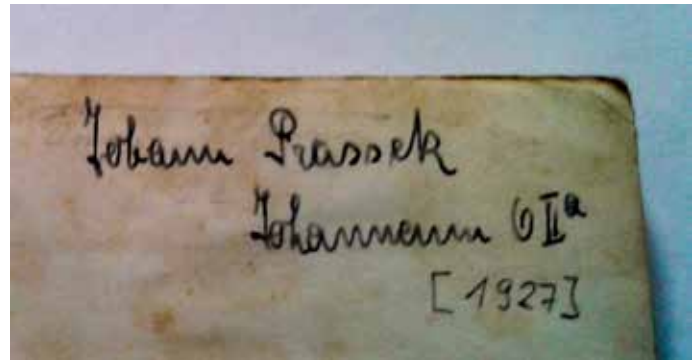 Johann Prassek
Johanneum O II a
[1927]